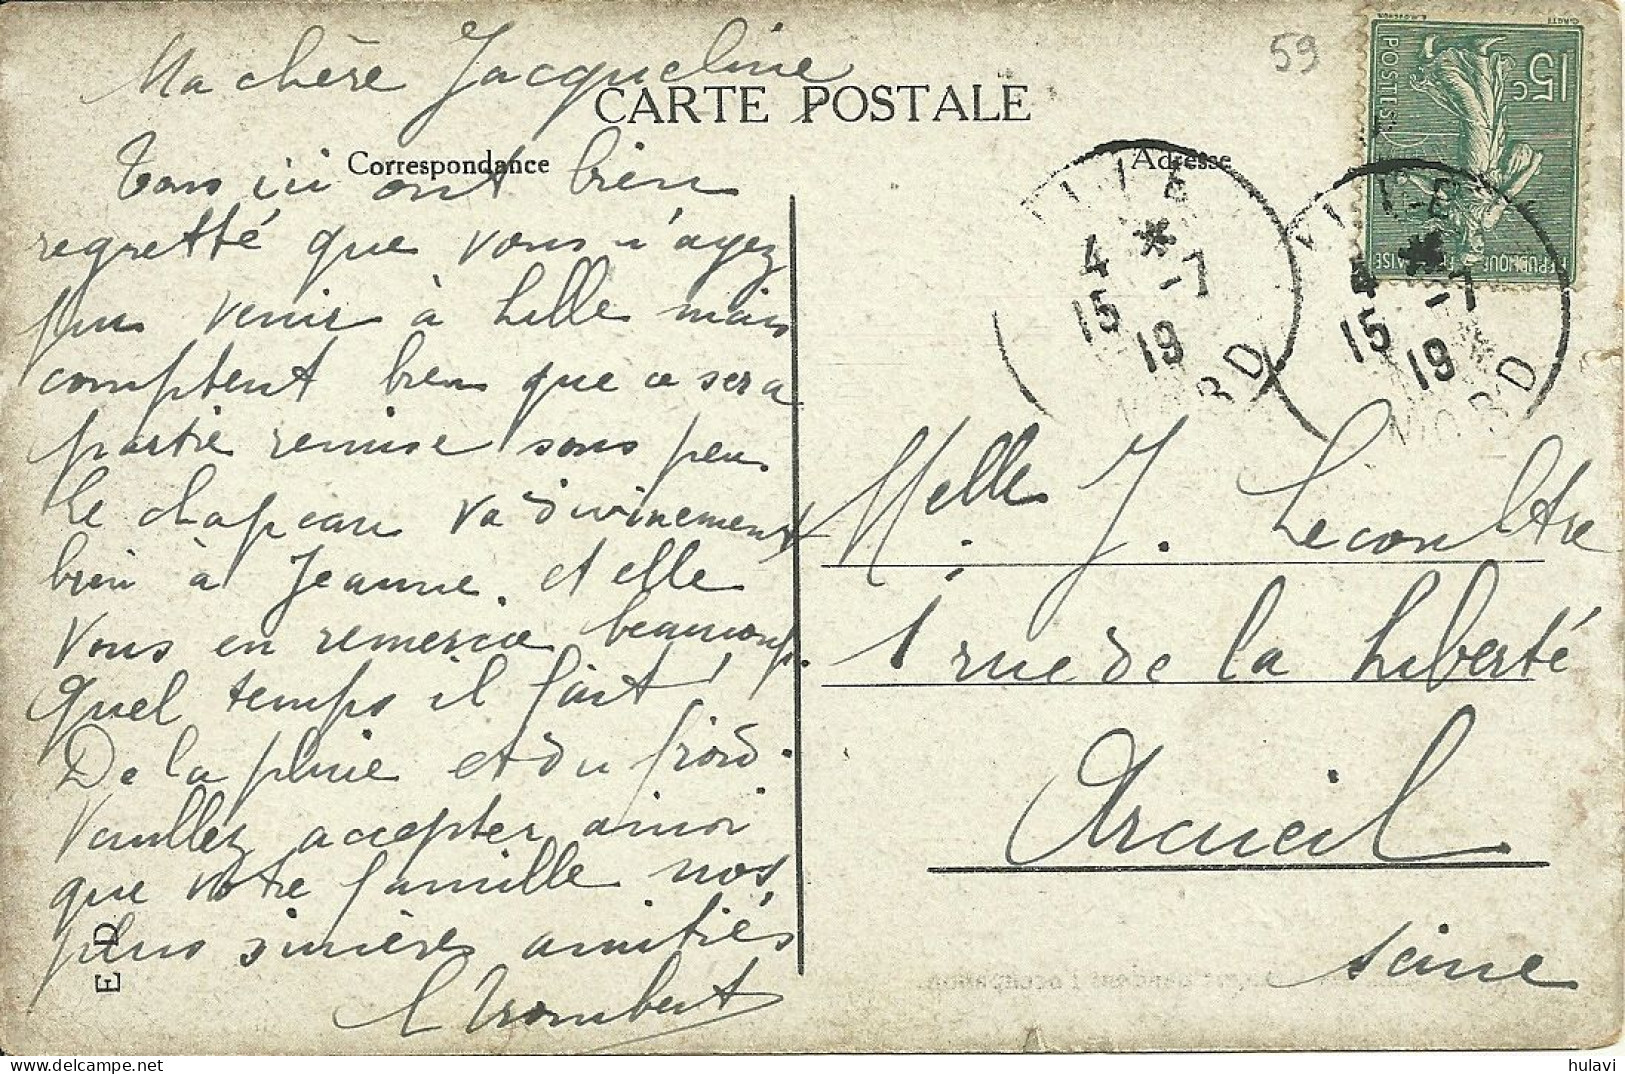 Ma chère Jacqueline
CARTE POSTALE
Correspondance
Adresse
59
15c
POSTES
Tous ici ont bien
regretté que vous n'ayez
pus venir à Lille mais
comptent bien que ce sera
partie remise sous peu
Le chapeau va divinement
bien à Jeanne. et elle
vous en remercie beaucoup.
Quel temps il fait!
De la pluie et du froid.
Veuillez accepter ainsi
que votre famille nos
plus sincères amitiés
L Trombert
E D
4 *
15 -7
19
NORD
4 *
15 -7
19
NORD
Melle J. Lecoultre
1 rue de la Liberté
Arcueil
Seine
hulavi